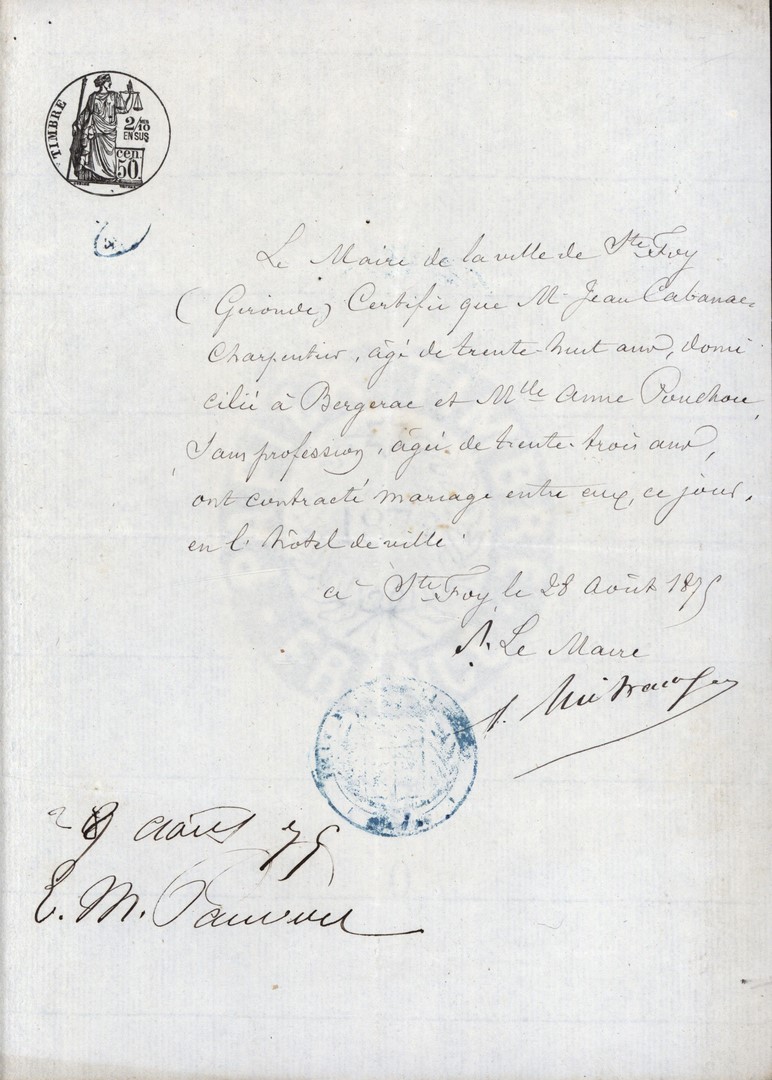 TIMBRE
2/10
EN SUS
50 cen.
Le Maire de la ville de Ste Foy
(Gironde) Certifie que M. Jean Cabanac
charpentier, âgé de trente-huit ans, domi
cilié à Bergerac et Mlle Anne Pouchou,
sans profession, âgée de trente-trois ans,
ont contracté mariage entre eux, ce jour,
en l'hôtel de ville.
à Ste Foy le 28 août 1875
Le Maire
août 75
E. M.